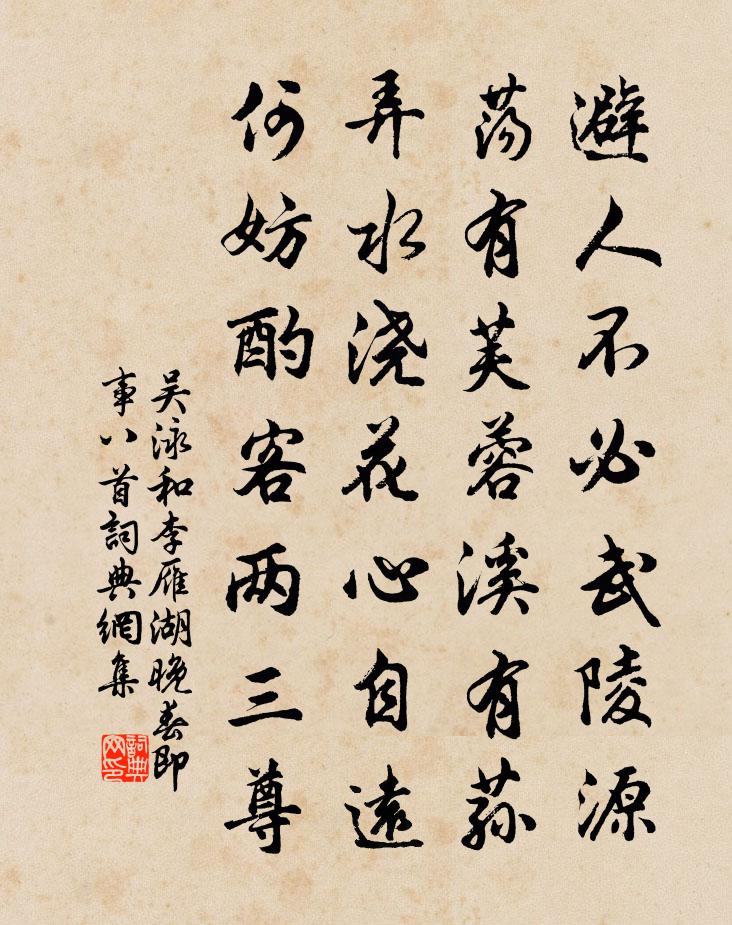 避人不必武陵源
荡有芙蓉溪有荪
弄水浇花心自遠
何妨酌客两三尊
吴泳和李雁湖晚春即
事八首詞典網集
詞典
网印